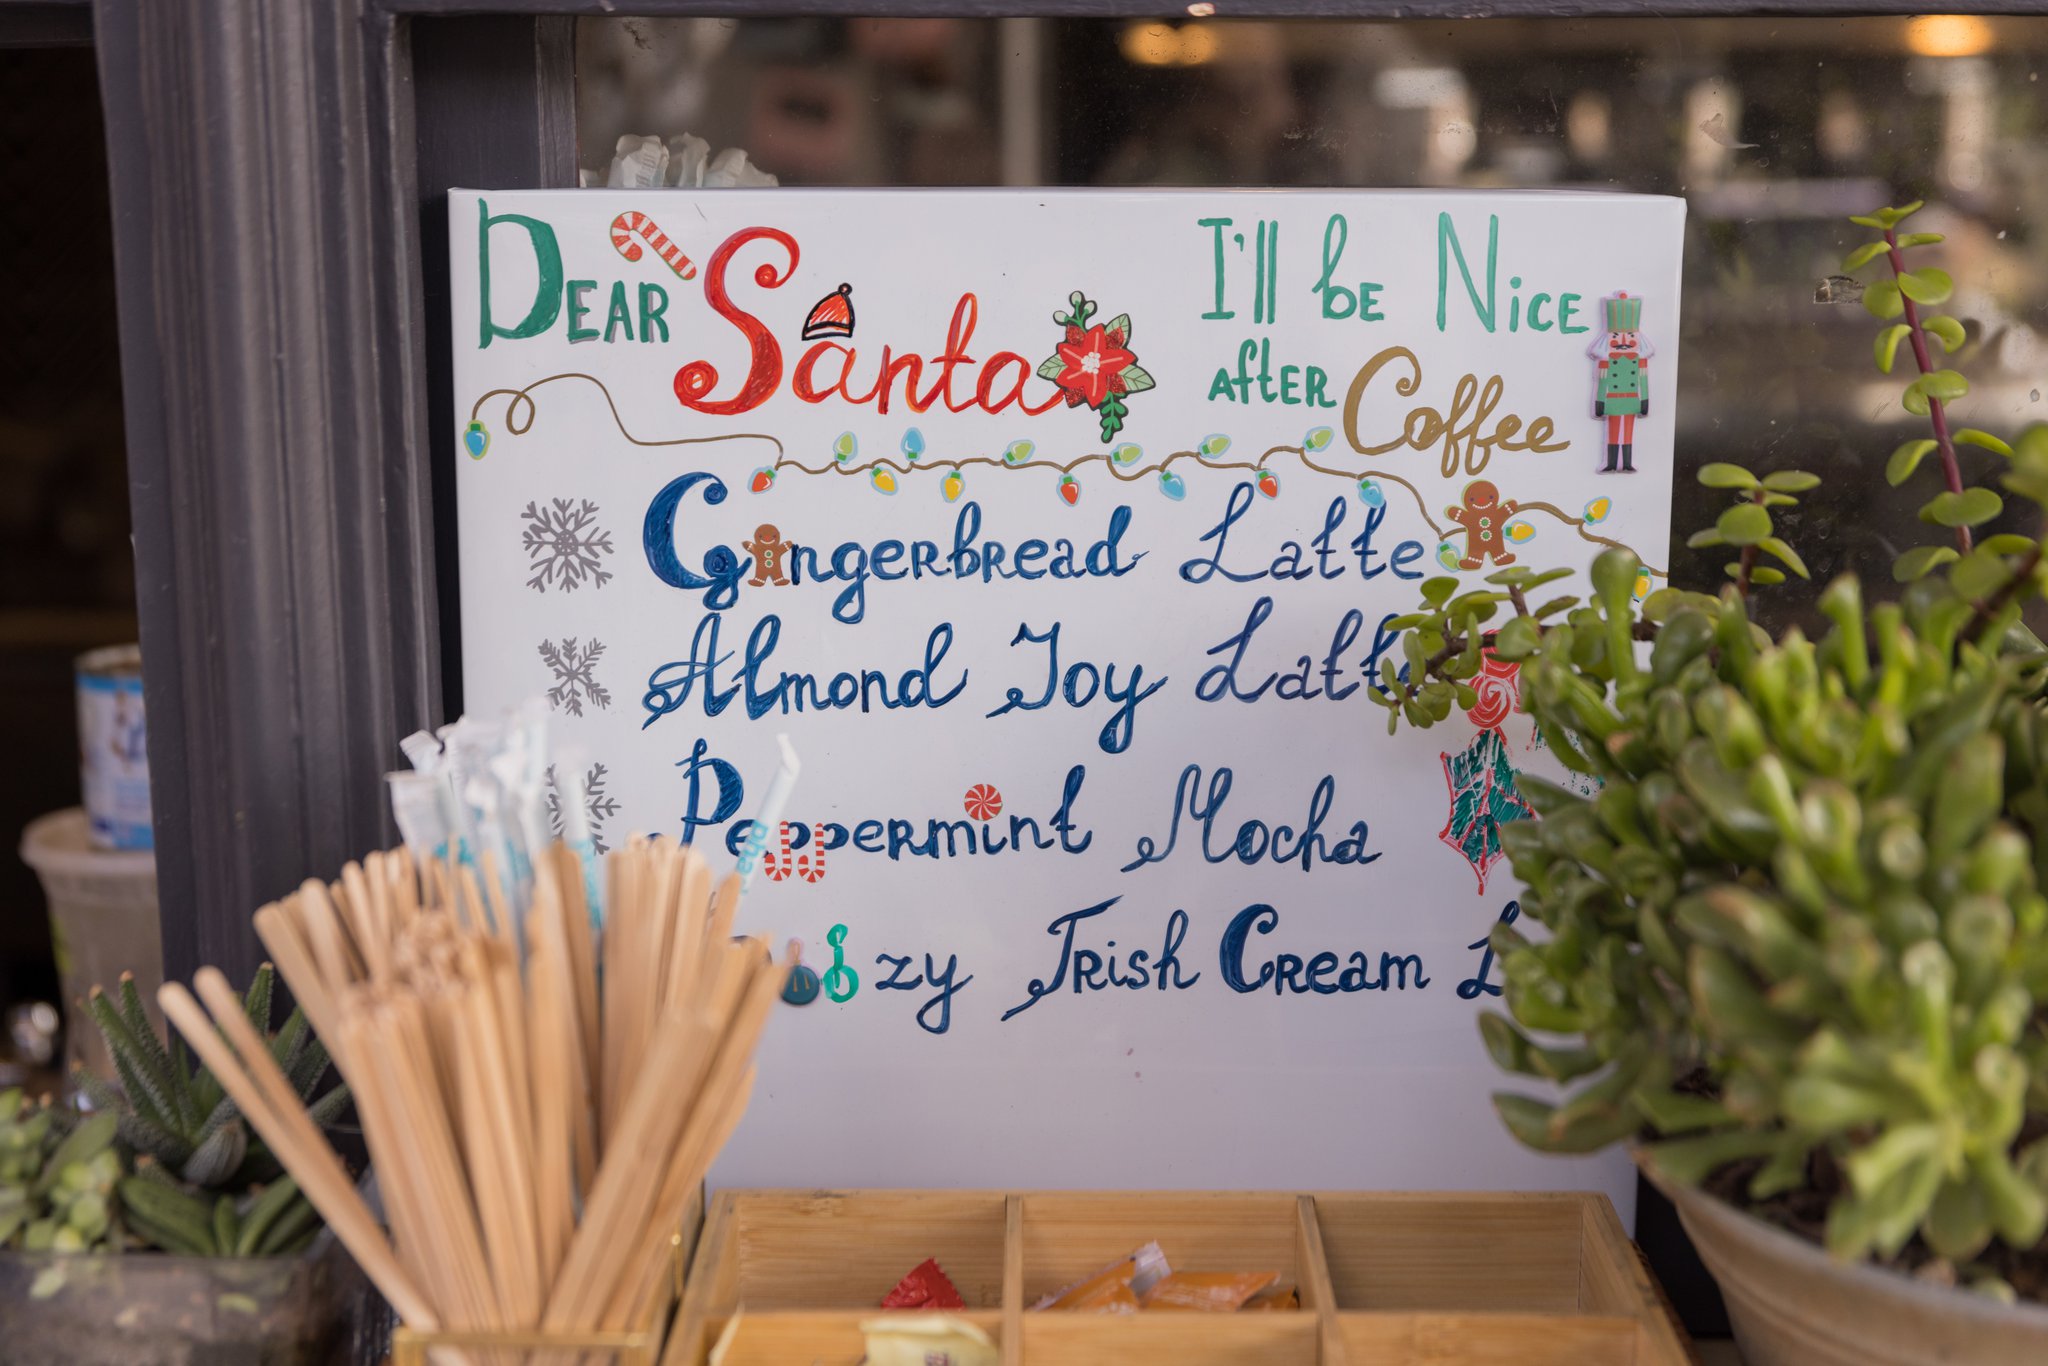 Dear Santa
I'll be Nice
after Coffee
Gingerbread Latte
Almond Joy Latte
Peppermint Mocha
Irish Cream